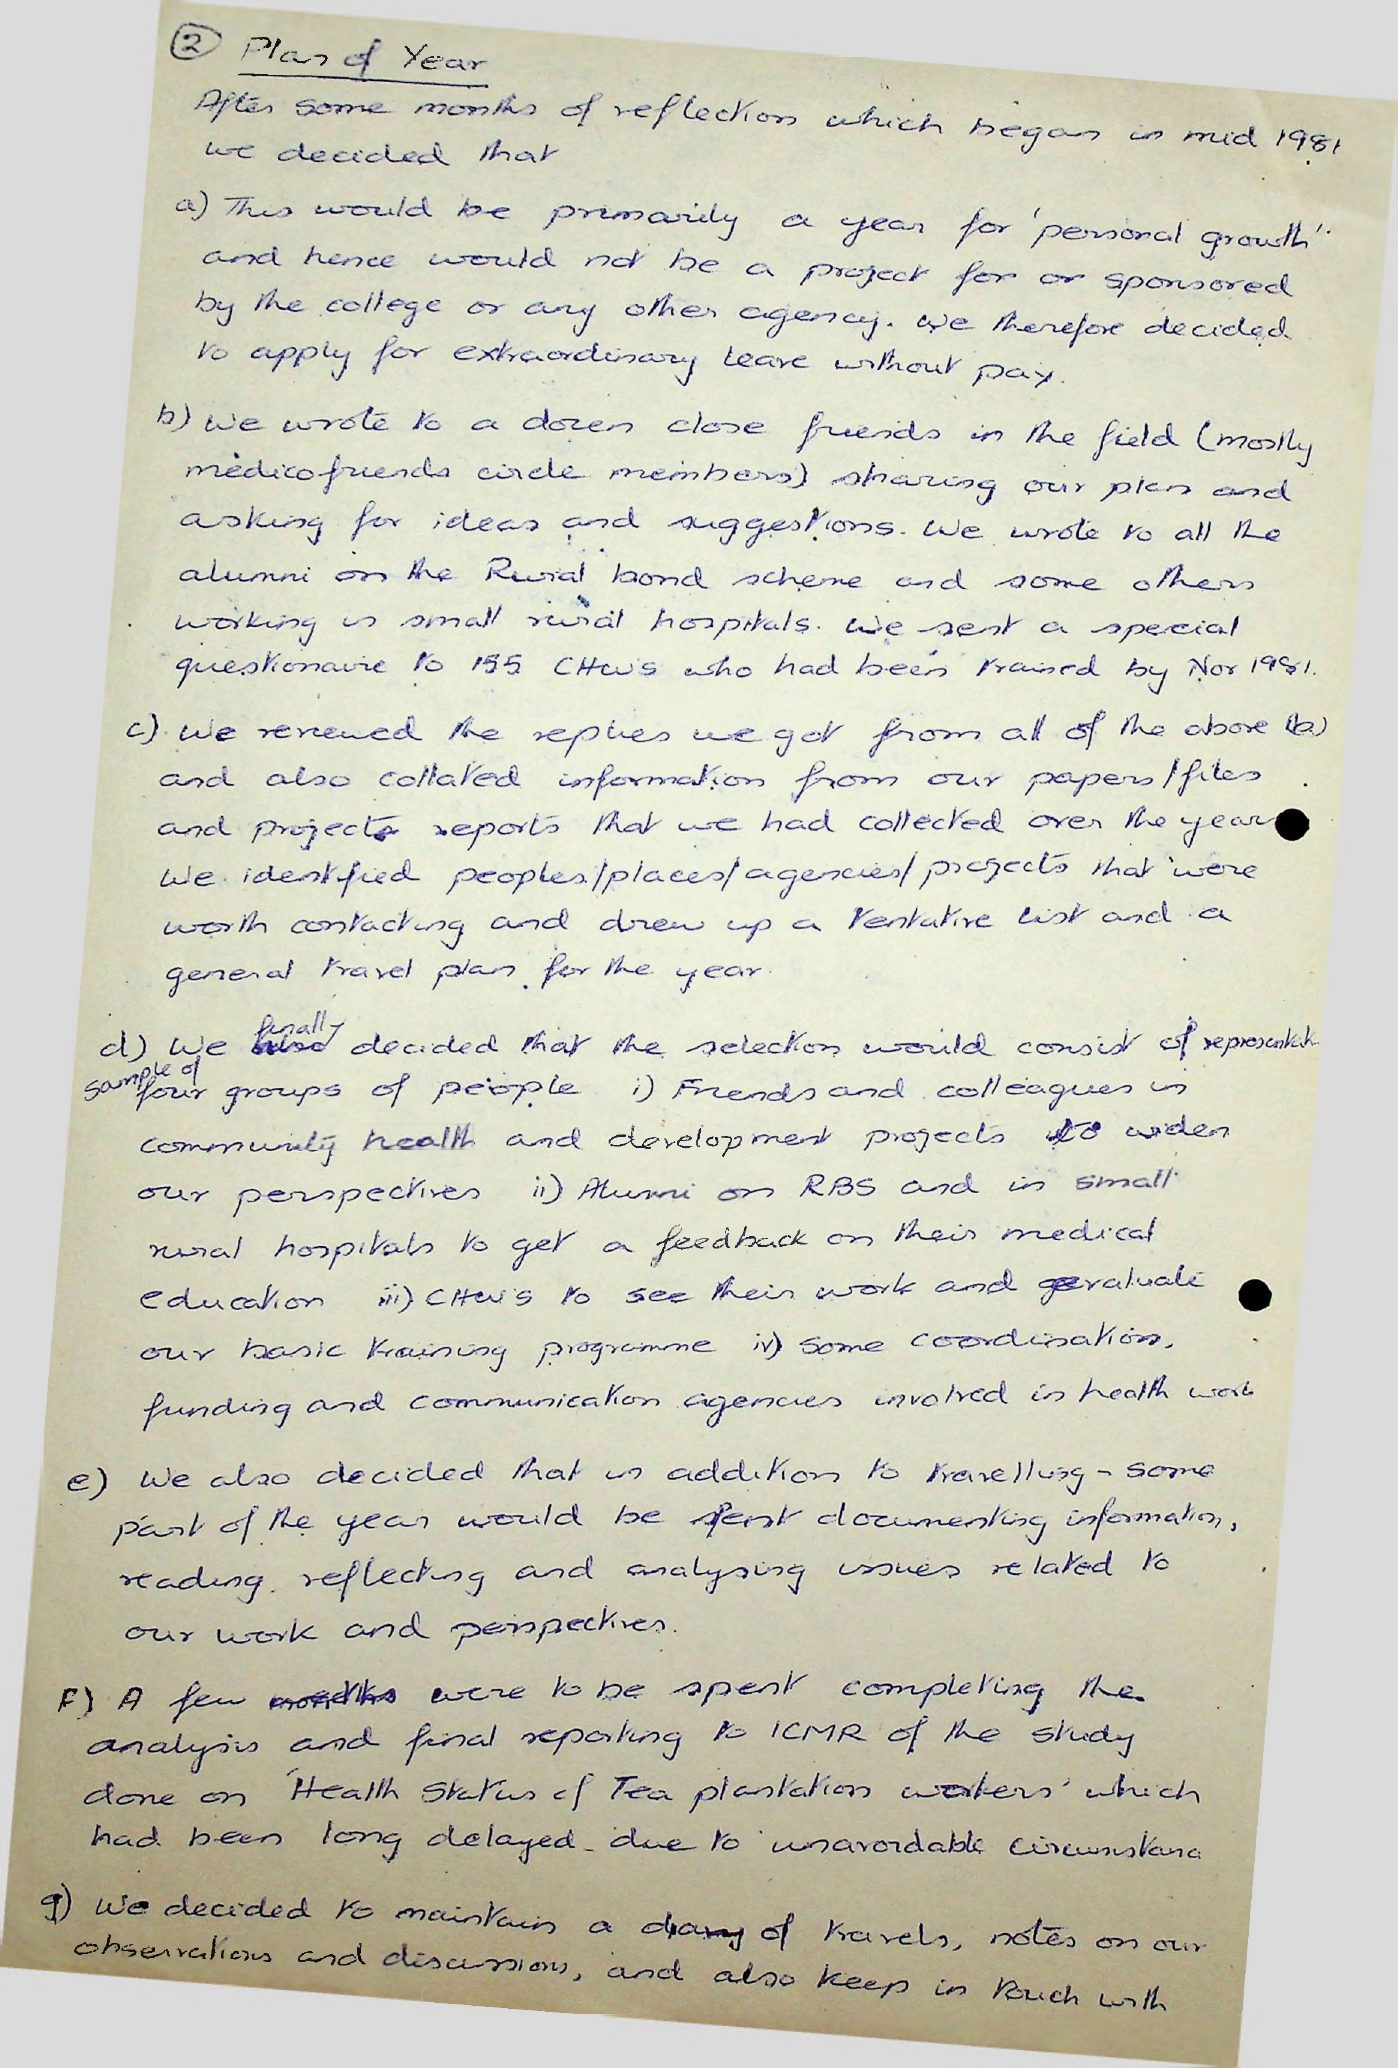 ② Plan of Year
After some months of reflection which began in mid 1981
we decided that
a) This would be primarily a year for 'personal growth''
and hence would not be a project for or sponsored
by the college or any other agency. We therefore decided
to apply for extraordinary leave without pay.
b) We wrote to a dozen close friends in the field (mostly
medico friends circle members) sharing our plan and
asking for ideas and suggestions. We wrote to all the
alumni on the Rural bond scheme and some others
working in small rural hospitals. We sent a special
questionaire to 155 CHWs who had been trained by Nov 1981.
c) We reviewed the replies we got from all of the above (b)
and also collated information from our papers/files
and projects reports that we had collected over the years
We identified peoples/places/agencies/projects that were
worth contacting and drew up a tentative list and a
general travel plan for the year.
d) We finally decided that the selection would consist of representat
sample of four groups of people i) Friends and colleagues in
community health and development projects to widen
our perspectives ii) Alumni on RBS and in small
rural hospitals to get a feedback on their medical
education iii) CHWs to see their work and evaluate
our basic training programme iv) Some coordination,
funding and communication agencies involved in health work
e) We also decided that in addition to travelling - some
part of the year would be spent documenting information,
reading, reflecting and analysing issues related to
our work and perspectives.
F) A few months were to be spent completing the
analysis and final reporting to ICMR of the study
done on 'Health Status of Tea plantation workers' which
had been long delayed due to unavoidable circumstanc
g) We decided to maintain a diary of travels, notes on our
observations and discussions, and also keep in touch with